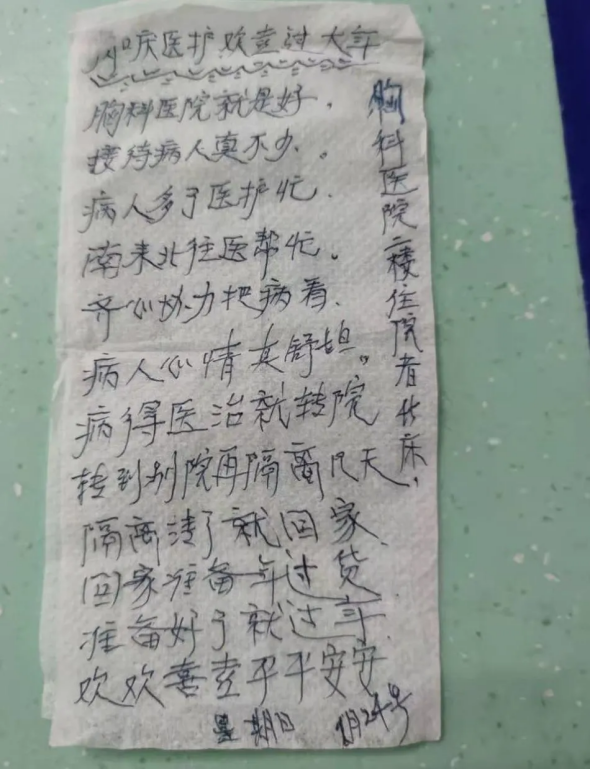 庆医护欢喜过大年
胸科医院就是好.
接待病人真不少。
病人多了医护忙.
南来北往医帮忙。
齐心协力把病看.
病人心情真舒坦。
病得医治就转院
转到别院再隔离几天
隔离清了就回家
回家准备年过货
准备好了就过年
欢欢喜喜平平安安
星期日 1月24号
胸科医院二楼住院者 床.